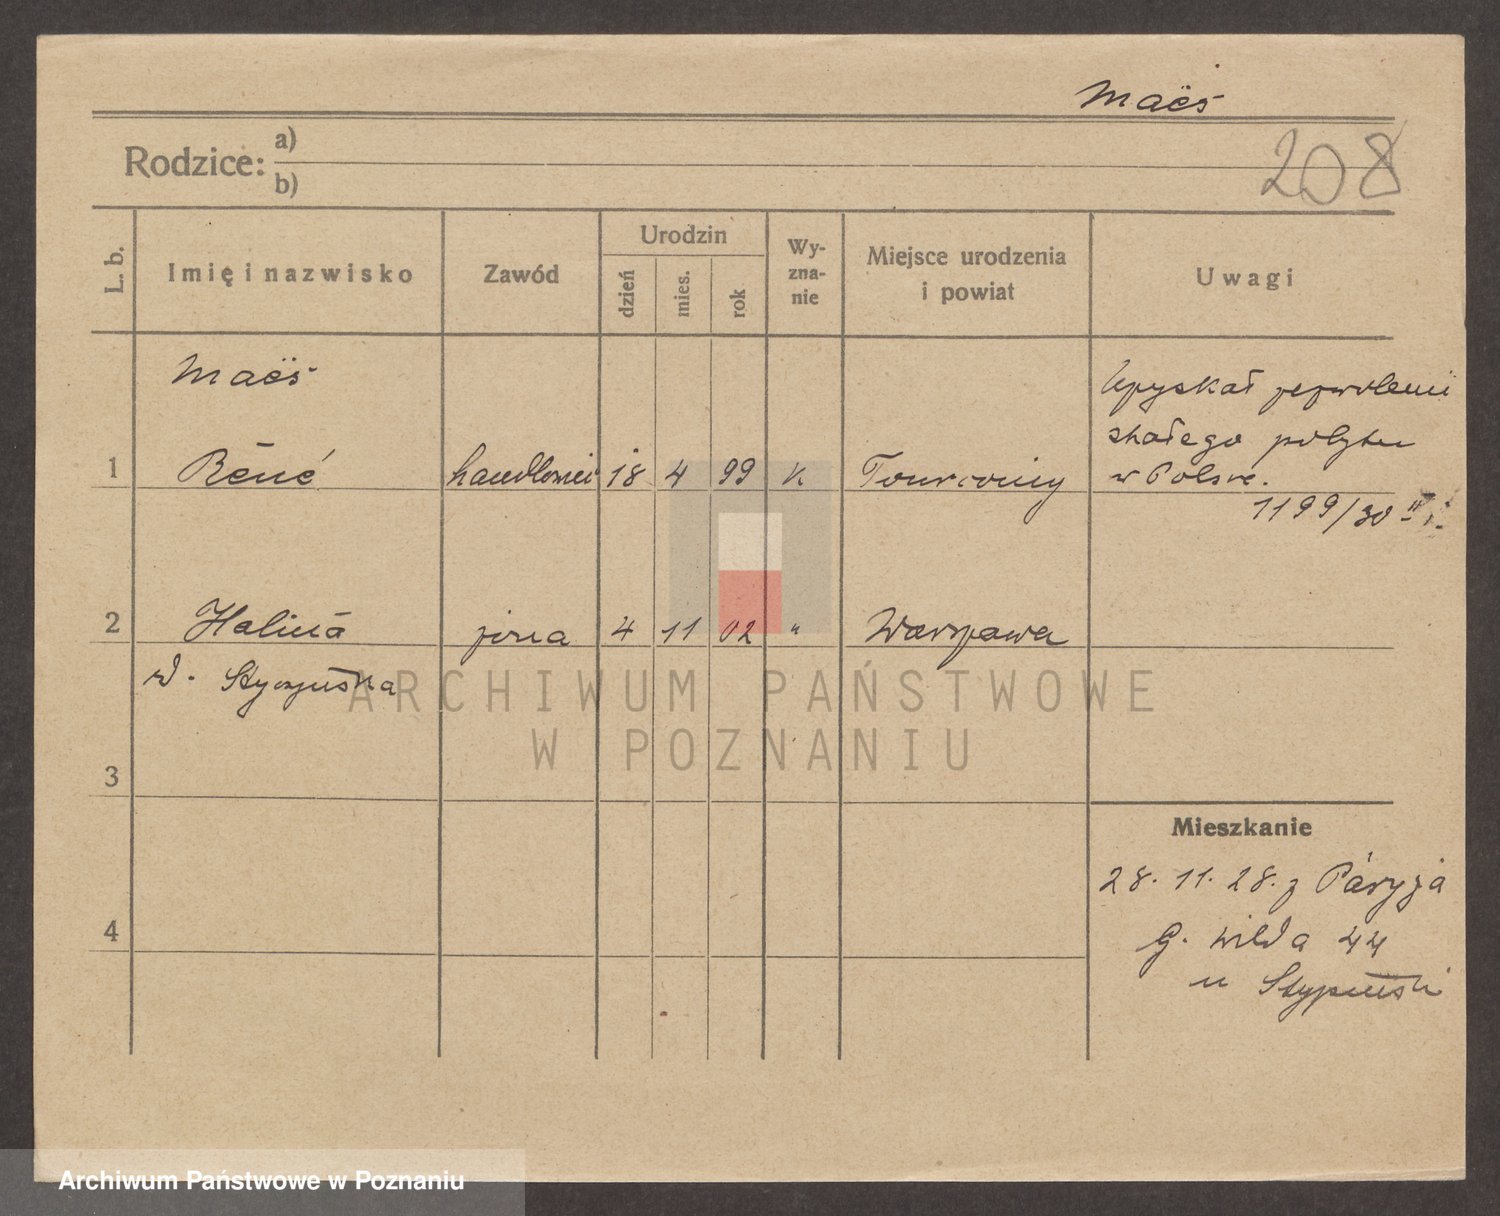 Maës
Rodzice:
a)
b)
208
L. b.
Imię i nazwisko
Zawód
Urodzin
dzień
mies.
rok
Wy-
zna-
nie
Miejsce urodzenia
i powiat
Uwagi
Maës
1 Réné handlowiec 18 4 99 K Tourcoing
Uzyskał zezwolenie
stałego pobytu
w Polsce.
1199/30
2 Halina żona 4 11 02 " Warszawa
d.
3
4
Mieszkanie
28. 11. 28. z Paryża
G. Wilda 44
u
ARCHIWUM PAŃSTWOWE
W POZNANIU
Archiwum Państwowe w Poznaniu